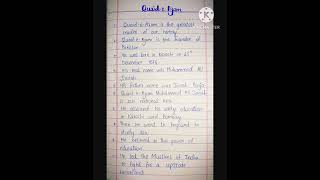 Quaid e Azam
Quaid-e-Azam is the greatest
leader of our history.
Quaid-e-Azam is the founder of
Pakistan.
He was born in Karachi on 25th
December 1876.
His real name was Muhammad Ali
Jinnah.
His father name was Jinnah Poonja
Quaid e Azam Muhammad Ali Jinnah
is our national hero.
He received his early education
in Karachi and Bombay.
Then he went to England to
study law.
He believed in the power of
education.
He led the Muslims of India
to fight for a separate
homeland.